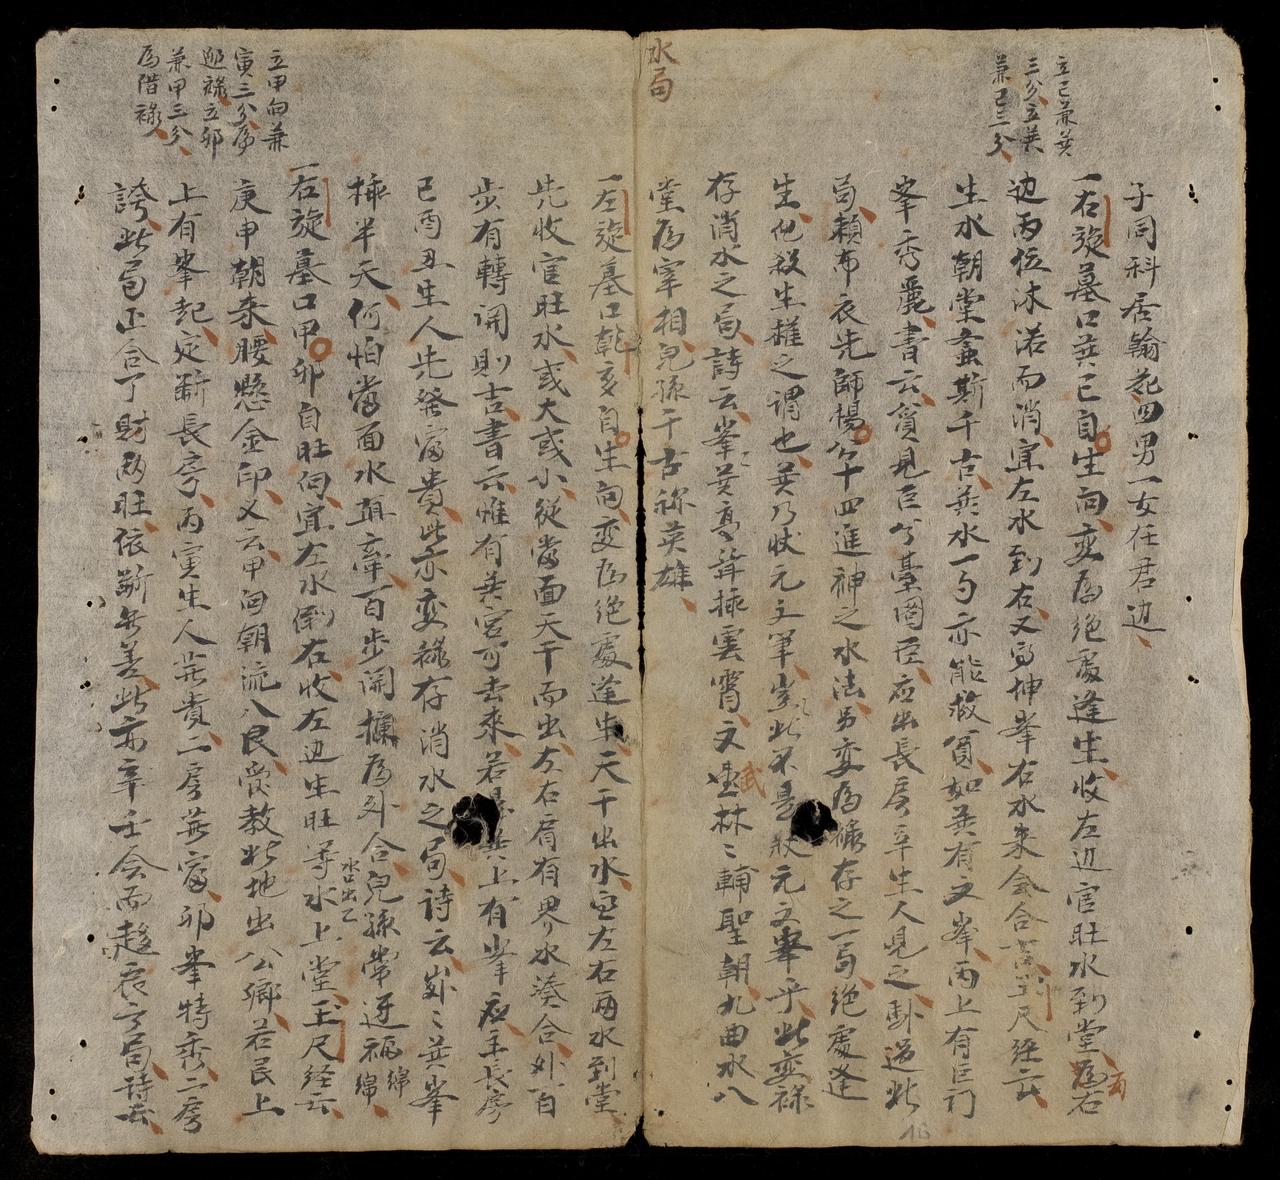 水局
立巳兼巽
三分立巽
兼巳三分
子同科居翰苑四男一女在君边
一右旋墓口巽巳自生向变為绝處逢生收左边官旺水到堂為右
边丙位沐浴而消宜左水到右又得坤峯右水来会合玉尺经云
生水朝堂螽斯千古巽水一勺亦能救貧如巽有文峯丙上有巨门
峯秀麗書云貧見巨兮臺閣臣应出長房辛生人見之卧過此
局賴布衣先師楊公十四進神之水法另变為祿存之一局絕處逢
生化殺生權之謂也巽乃状元文筆豈此不是狀元文峯乎此变祿
存消水之局詩云峯巽高聳插雲霄文武林〻輔聖朝九曲水八
堂為宰相兒孫千古称英雄
一左旋墓口乾亥自生向变為绝處逢生天干出水宜左右兩水到堂
先收官旺水或大或小從當面天干而出左右肩有界水湊合外百
步有轉阴則吉書云惟有巽宫可去来若是巽上有峯应主長房
己酉丑生人先發富貴此亦变祿存消水之局詩云巍〻巽峯
插半天何怕當面水直牽百步関攔為外合兒孫常迓福綿綿
一右旋墓口甲卯自旺向宜左水倒右收左边生旺等水上堂玉尺经云
水口出乙
庚申朝来腰懸金印又云甲向朝流入艮受教此地出公鄉若艮上
上有峯起定斷長房丙寅生人無貴二房無富卯峯特秀二房
誇此局正合丁財兩旺依斷無差此亦辛壬会而趨辰之局詩云
立甲向兼
寅三分為
廻祿立卯
兼甲三分
為借祿